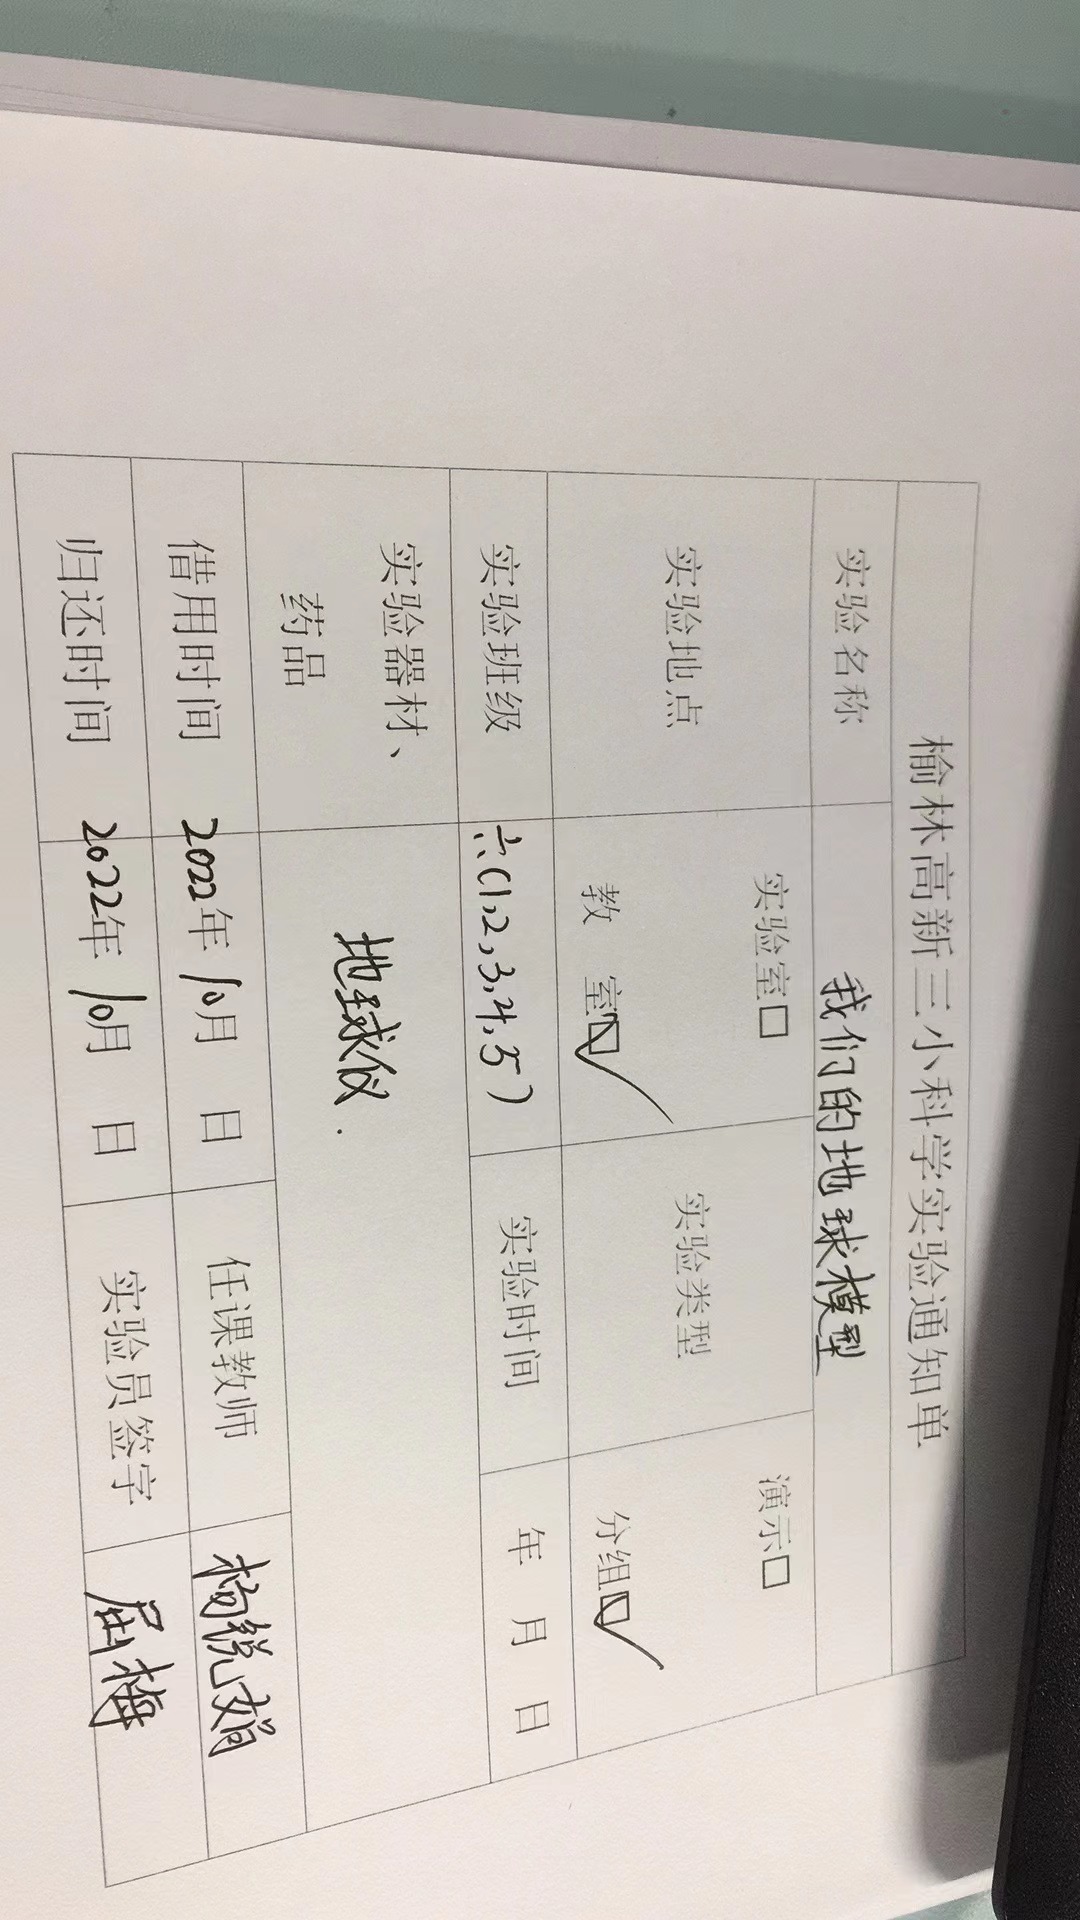 榆林高新三小科学实验通知单
实验名称 我们的地球模型
实验地点 实验室□ 教 室☑ 实验类型 演示□ 分组☑
实验班级 六(1,2,3,4,5) 实验时间 年 月 日
实验器材、药品 地球仪.
借用时间 2022年10月 日 任课教师 杨锐娟
归还时间 2022年10月 日 实验员签字 屈梅